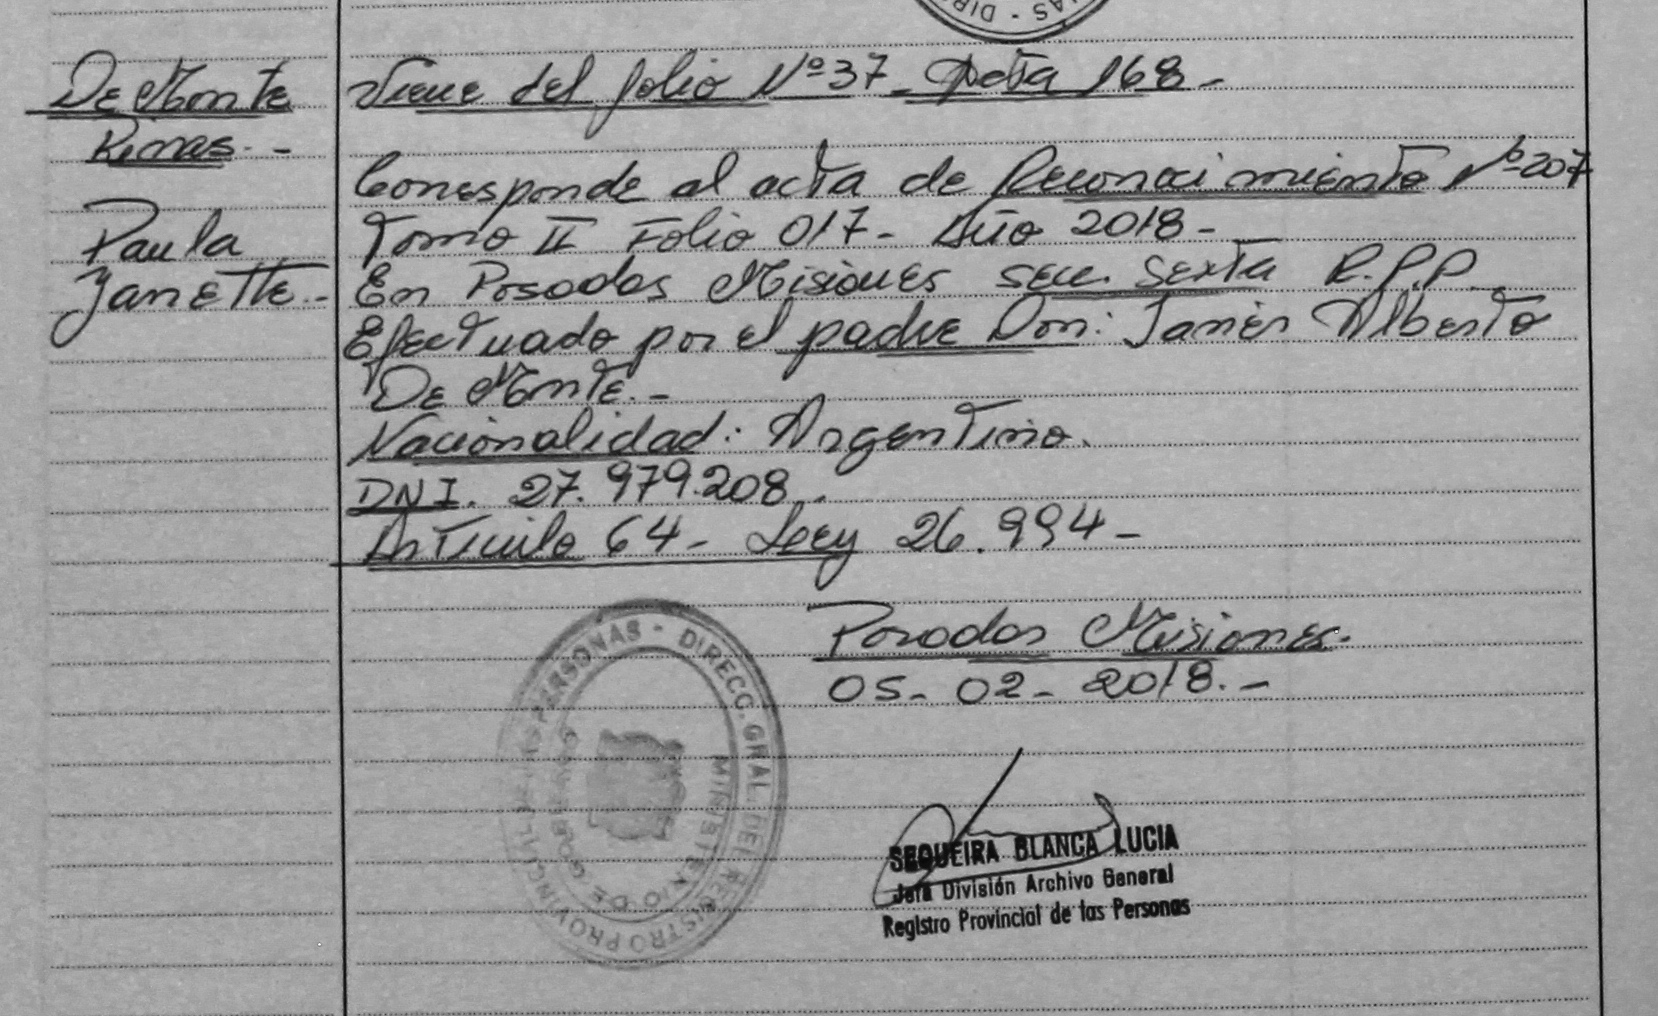 DIREC - AS
De Monte
Rimas. -
Paula
Janette. -
Viene del folio Nº 37 - Acta 168 -
Corresponde al acta de Reconocimiento Nº 207
Tomo II Folio 017 - Año 2018 -
En Posadas Misiones secc. Sexta R.P.P.
Efectuado por el padre Don: Javier Alberto
De Monte. -
Nacionalidad: Argentino.
DNI. 27.979.208.
Articulo 64 - Ley 26.994 -
Posadas Misiones.
05 - 02 - 2018. -
DIRECC. GRAL. DEL REGISTRO PROVINCIAL DE LAS PERSONAS -
MINISTERIO DE GOBIERNO
SEQUEIRA BLANCA LUCIA
Jefa División Archivo General
Registro Provincial de las Personas